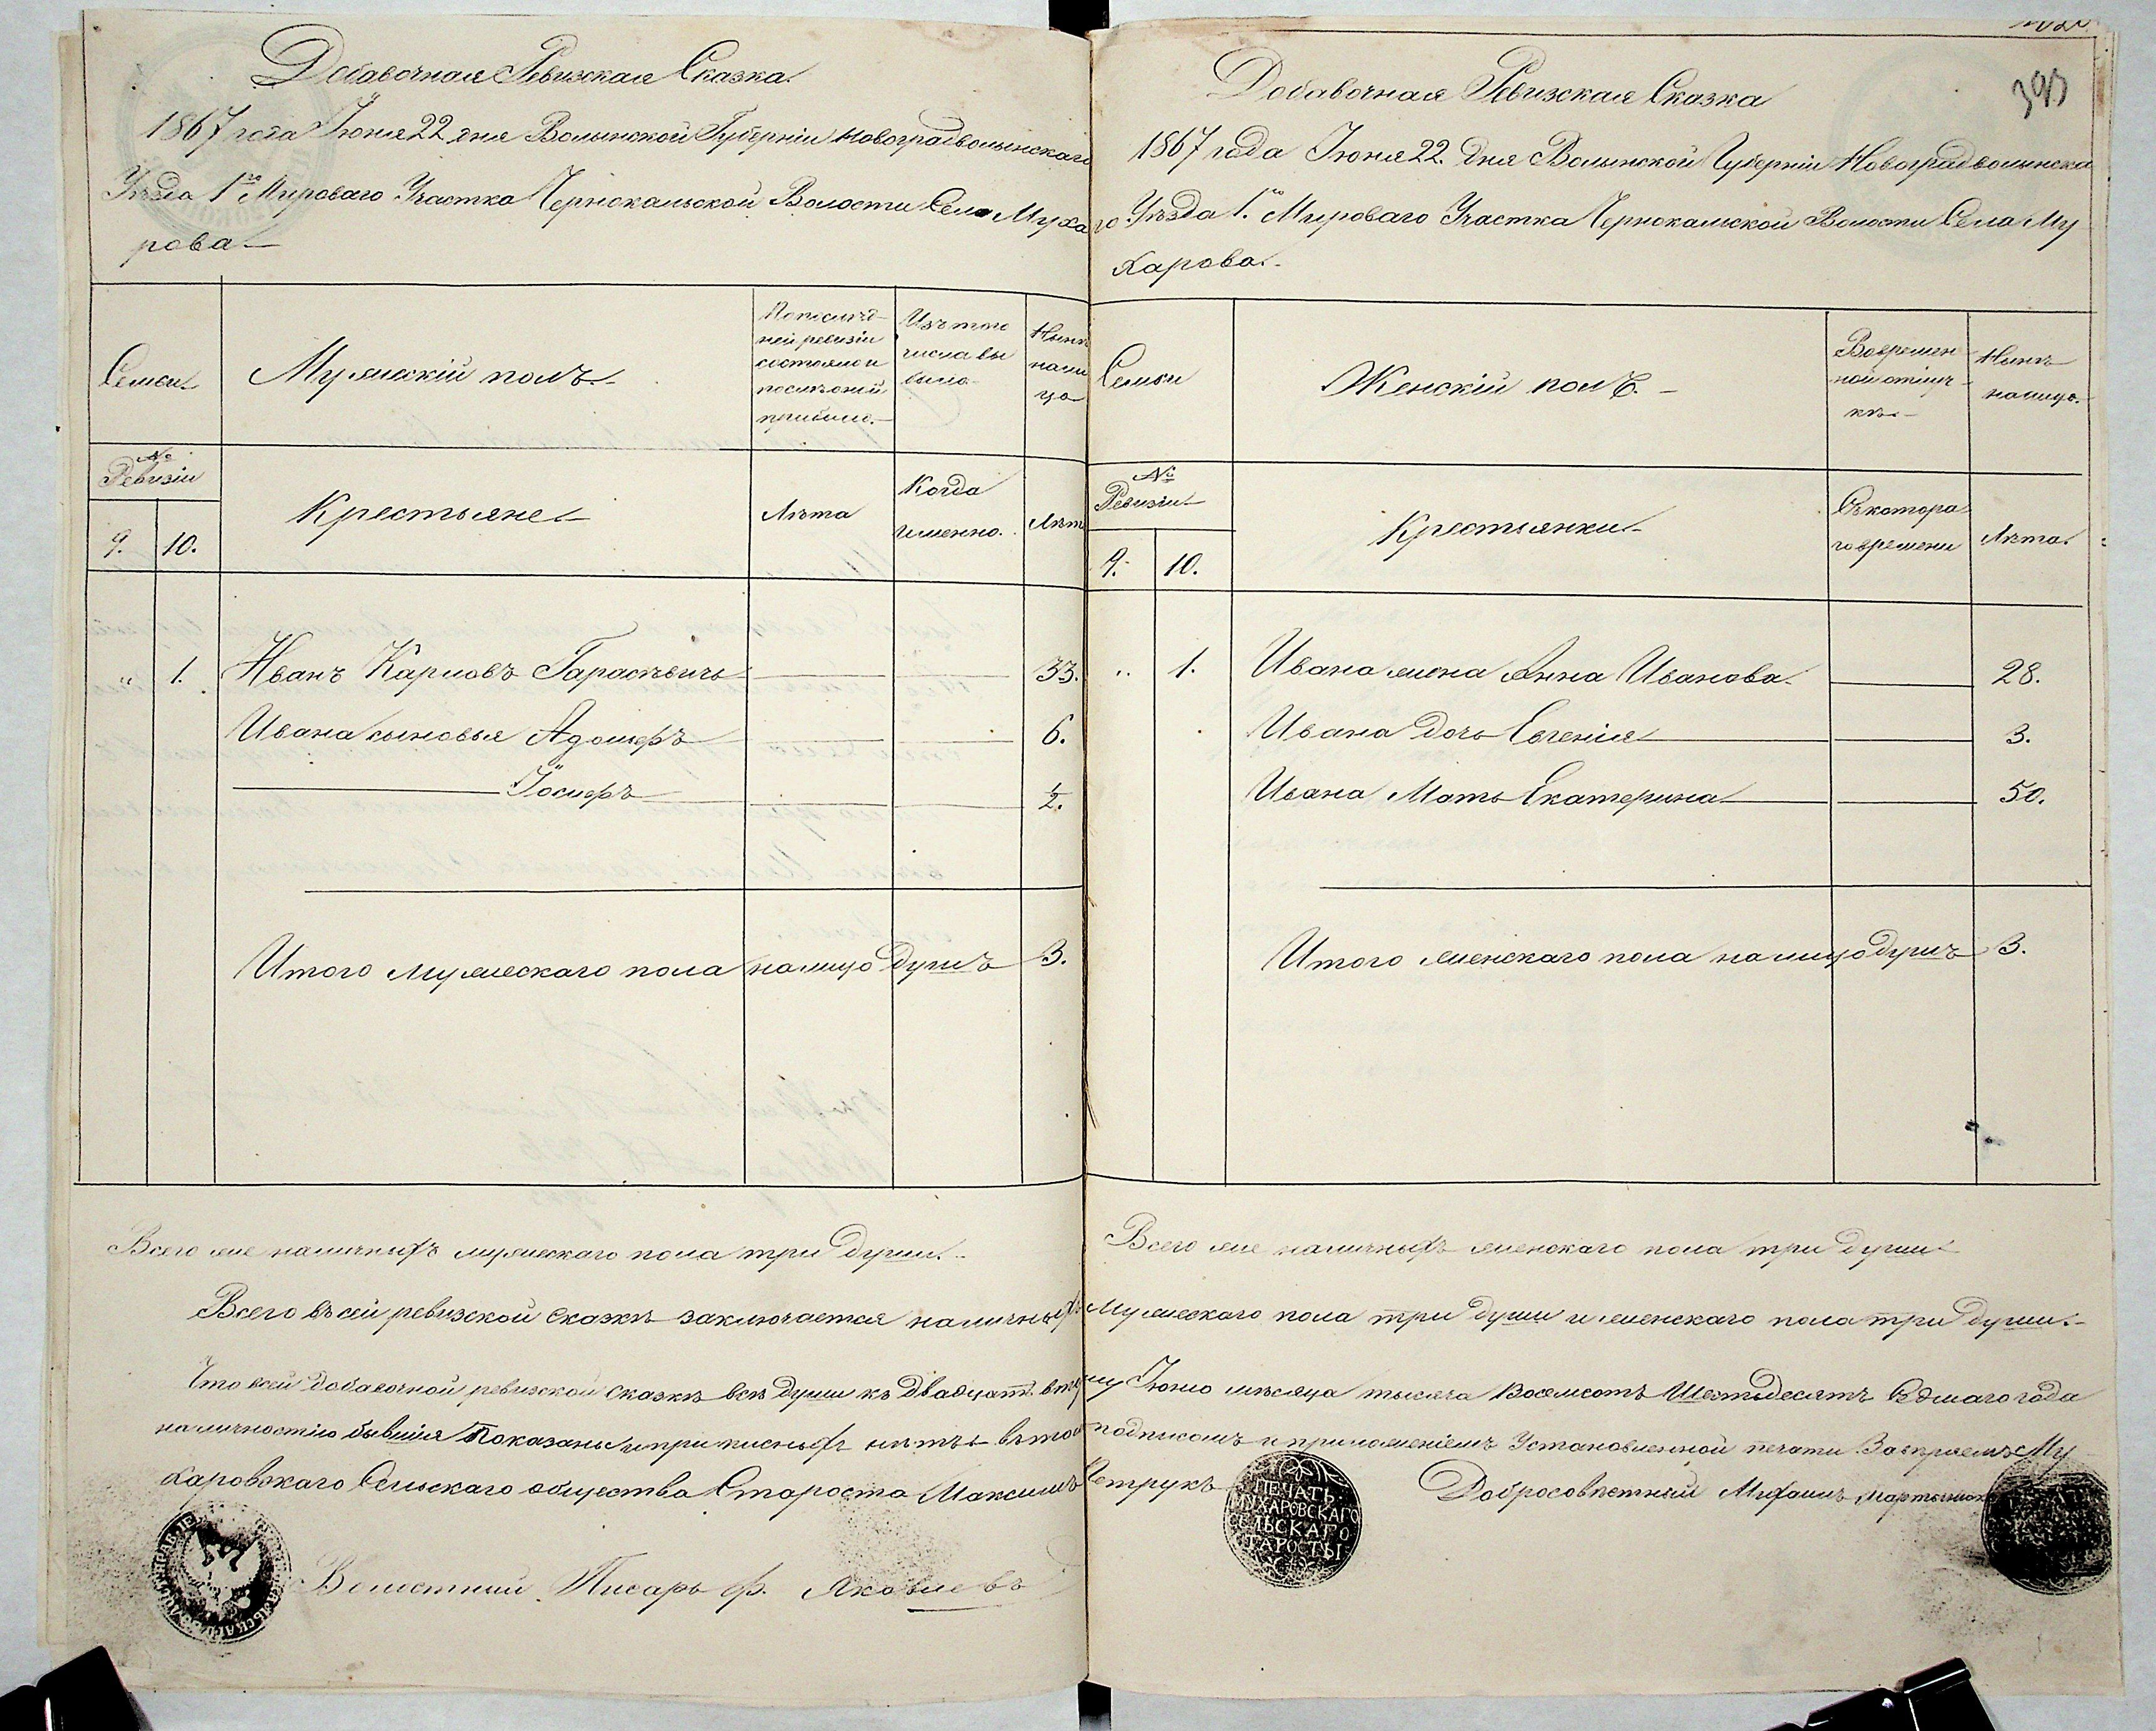 Добавочная Ревизская Сказка.
1867 года Іюня 22 дня Волынской Губерніи Новоградволынскаго
Уѣзда 1го Мироваго Участка Чернокальской Волости Села Муха
рова
Семьи
Мужскій полъ.
По послѣд
ней ревизіи
состояло и
послѣ оной
прибыло.
Изъ того
числа вы
было
Нынѣ
нали
цо
№
Ревизіи
9. 10.
Крестьяне
Лѣта
Когда
именно.
Лѣта
„ 1. Иванъ Карловъ Гараевичъ 33.
Ивана сыновья Адольфъ 6.
Іосифъ ½.
Итого мужескаго пола налицо душъ 3.
Всего же наличныхъ мужескаго пола три души.
Добавочная Ревизская Сказка
1867 года Іюня 22. дня Волынской Губерніи Новоградволынска
го Уѣзда 1.го Мироваго Участка Чернокальской Волости Села Му
харова.
Семьи
Женскій полъ.
Во времен
ной отлуч
кѣ.
Нынѣ
налицо.
№
Ревизіи
9. 10.
Крестьянки
Съ котора
го времени
Лѣта.
„ 1. Ивана жена Анна Иванова. 28.
Ивана дочь Евгенія 3.
Ивана Мать Екатерина 50.
Итого женскаго пола налицо душъ 3.
Всего же наличныхъ женскаго пола три души
Всего въ сей ревизской сказкѣ заключается наличныхъ Мужескаго пола три души и женскаго пола три души.
Что въ сей добавочной ревизской сказкѣ всѣ души къ двадцать второму Іюню мѣсяца тысяча восемсотъ шестьдесятъ седмаго года
наличностію бывшія показаны и приписныхъ нѣтъ въ томъ подписомъ и приложеніемъ установленной печати Му
харовскаго Сельскаго общества Староста Максимъ Петрукъ
Добросовѣстный
Волостный Писарь Ф. Яковлевъ
ПЕЧАТЬ
МУХАРОВСКАГО
СЕЛЬСКАГО
СТАРОСТЫ